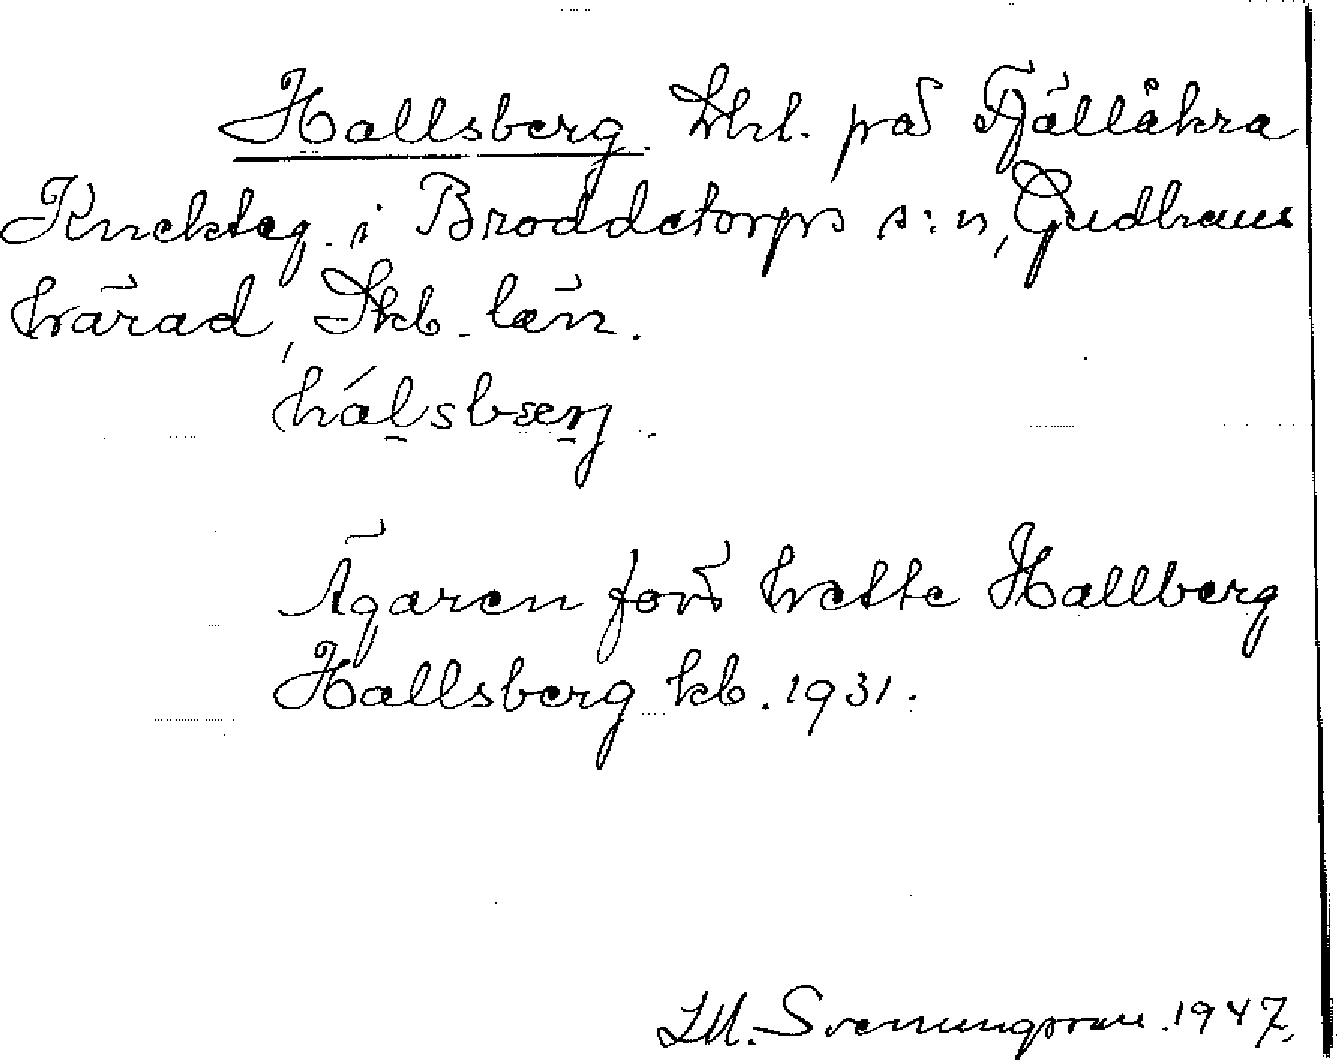 Hallsberg. Lht. på Fjällåkra
Knekteg. i Broddetorps s:n, Gudhems
härad, Skb. län.
hálsbærj.
Ägaren förr hette Hallberg
Hallsberg kb. 1931.
Svenungsson. 1947.